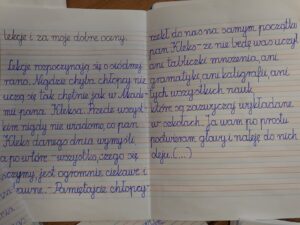 lekcje i za moje dobre oceny.
Lekcje rozpoczynają się o siódmej
rano. Nigdzie chyba chłopcy nie
uczą się tak chętnie jak w Akade-
mii pana Kleksa. Przede wszyst-
kim nigdy nie wiadomo, co pan
Kleks danego dnia wymyśli
a po wtóre - wszystko, czego się
uczymy, jest ogromnie ciekawe i
zabawne. - Pamiętajcie chłopcy -
rzekł do nas na samym początku
pan Kleks - że nie będę was uczył
ani tabliczki mnożenia, ani
gramatyki, ani kaligrafii, ani
tych wszystkich nauk,
które są zazwyczaj wykładane
w szkołach. Ja wam po prostu
pootwieram głowy i naleję do nich
oleju. (...)